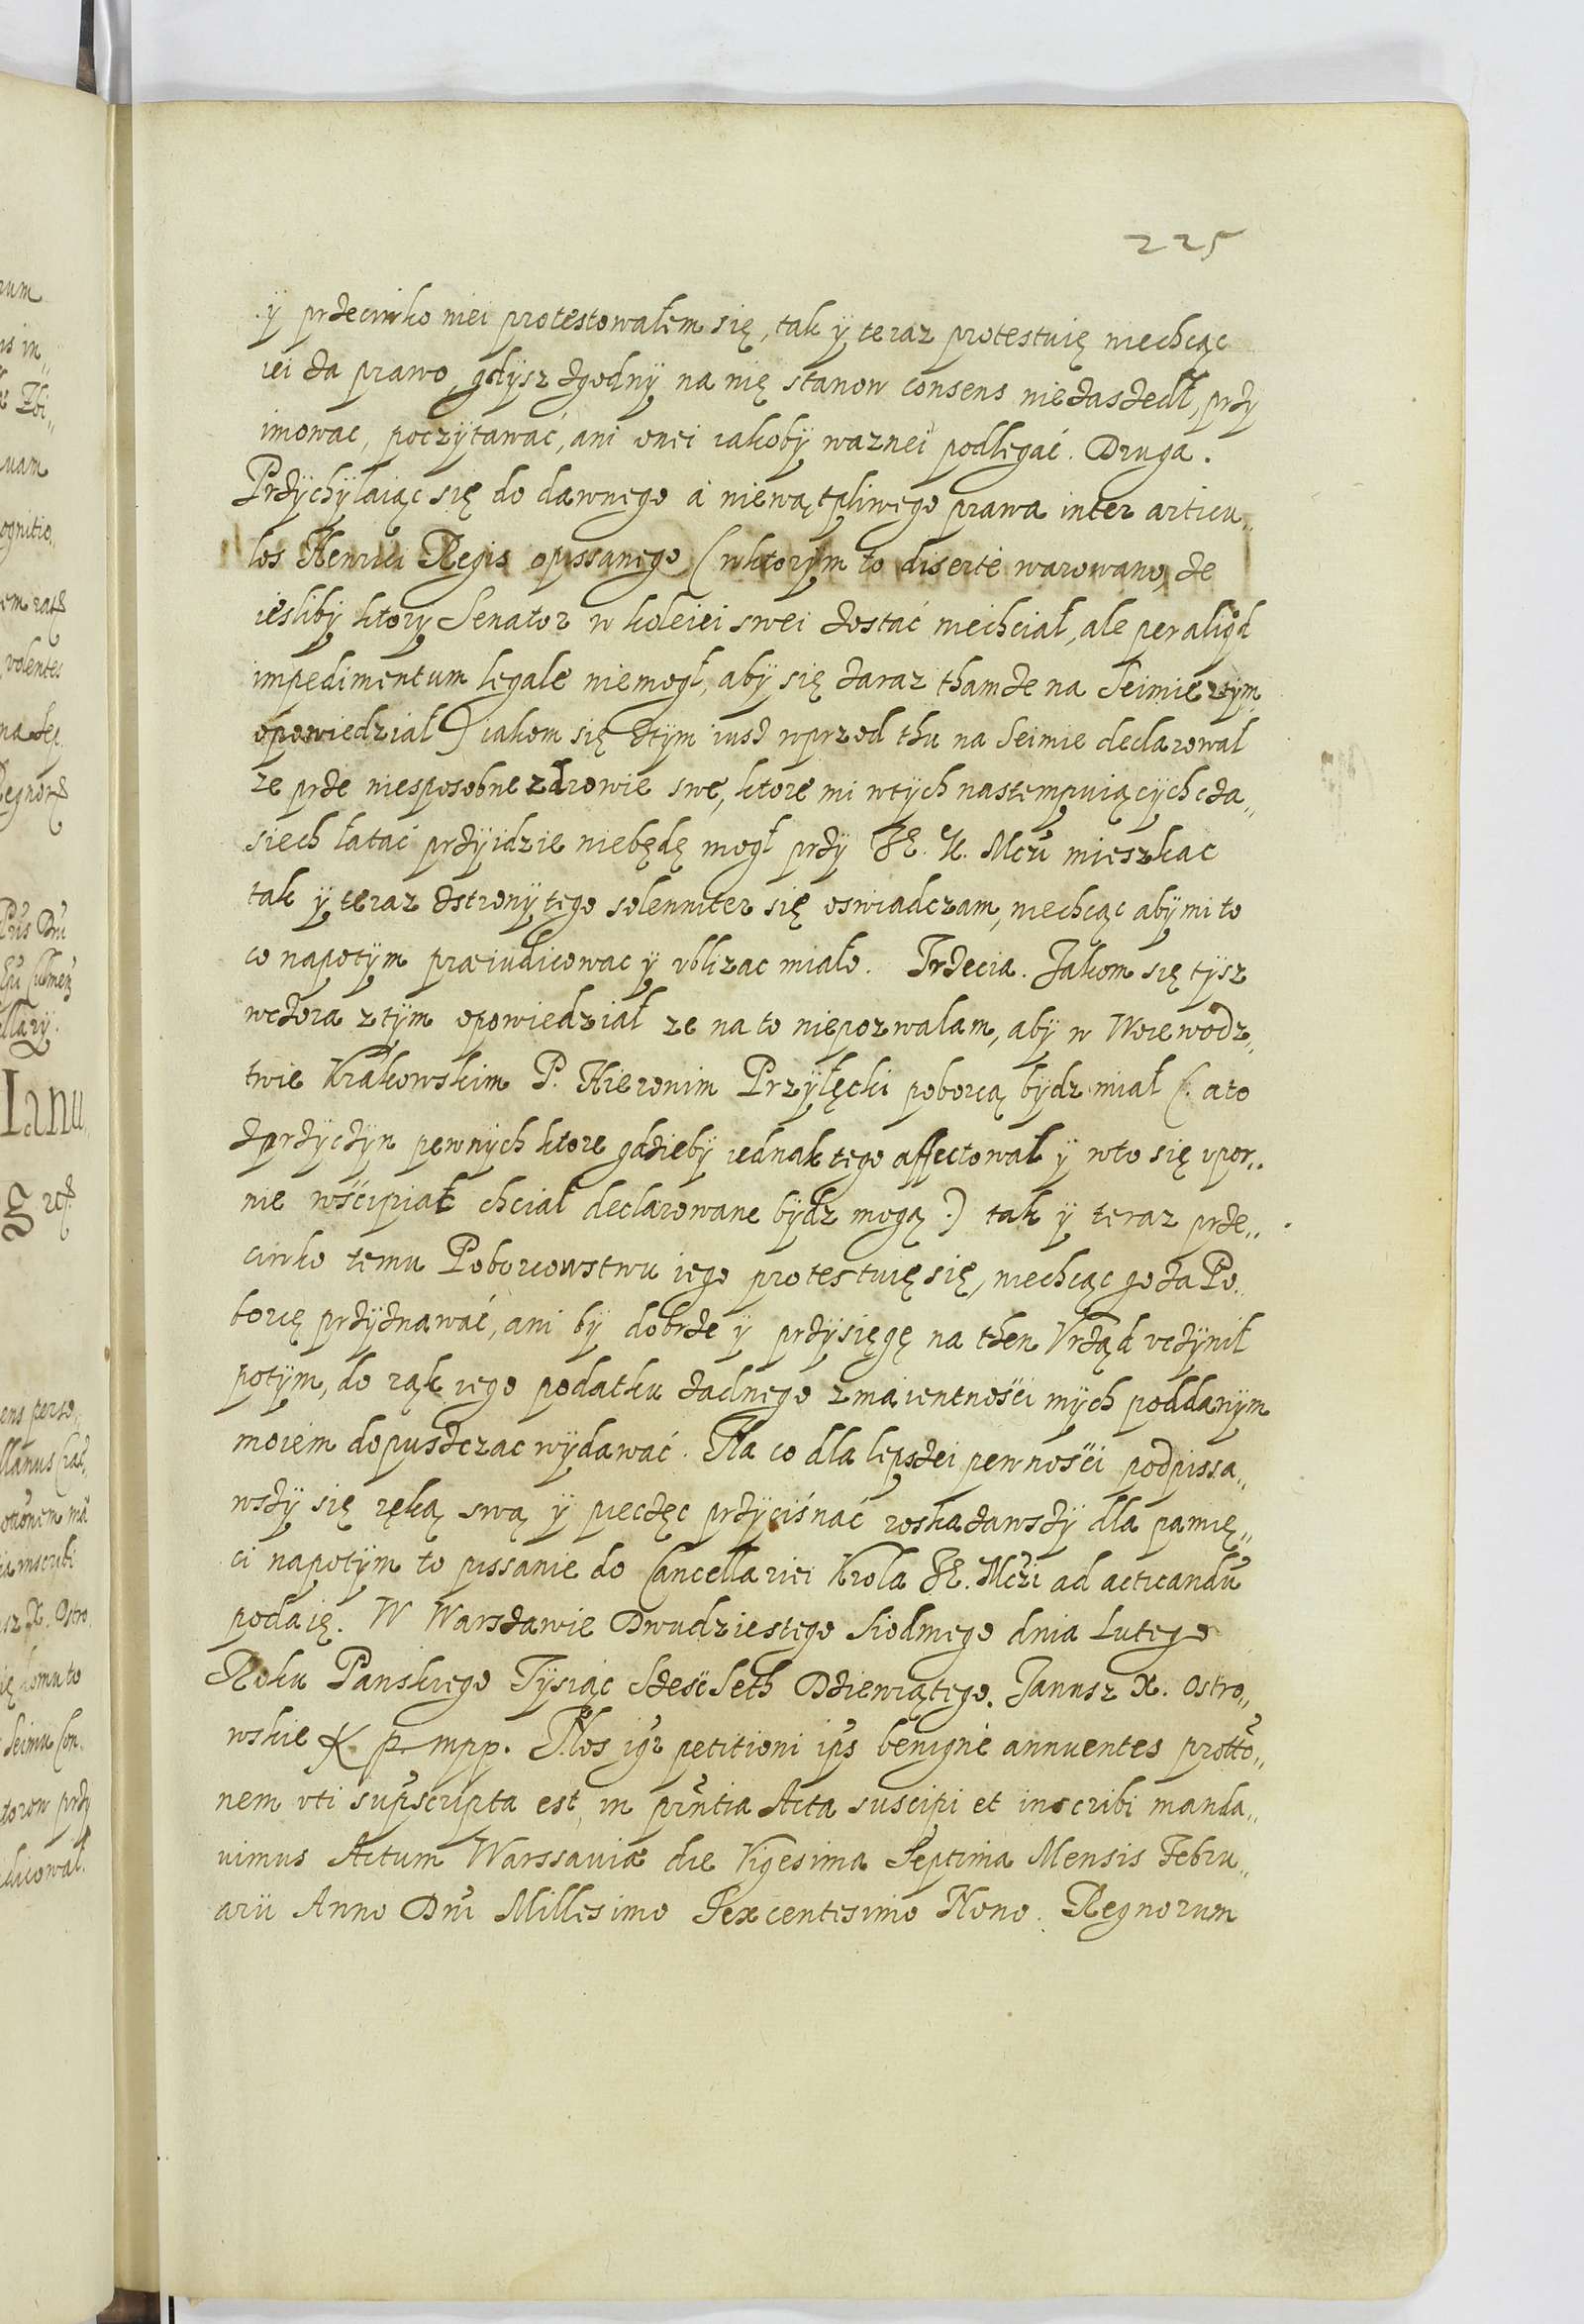 225
ÿ przeciwko niei protestowałem się, tak ÿ teraz protestuię niechcąc
iei za prawo, gdÿsz zgodnÿ na nię stanow consens niezaszedł, przÿ
imowac, poczÿtawać, ani onei iakobÿ waznei podlegać. Druga.
Przÿchÿlaiąc się do dawnego a niewątpliwego prawa inter articu„
los Henrici Regis opissanego (wktorÿm to diserte warowano, ze
iesliby ktorÿ Senator w koleiei swei zostać niechciał, ale per aliqd
impedimentum legale niemogł, abÿ się zaraz thamze na Seimie ztÿm
opowiedział) iakom się ztÿm iusz wprzod thu na Seimie declarował
ze prze niesposobne zdrowie swe, ktore mi wtÿch nastempuiącÿch cza„
siech łatać przÿidzie niebędę mogł przÿ JE. K. Mczi mieszkac
tak ÿ teraz zstronÿ tego solenniter się oswiadczam, niechcąc abÿ mi to
co napotÿm præiudicowac ÿ vblizac miało. Trzecia. Jakom się tÿsz
wczora ztÿm opowiedział ze na to niepozwalam, abÿ w Woiewodz„
twie Krakowskim P. Hieronim Przÿłęcki poborcą bÿdz miał (: a to
zprzÿczÿn pewnÿch ktore gdziebÿ iednak tego affectował ÿ wto się vpor„
nie wścipiać chciał declarowane bÿdz mogą :) tak ÿ teraz prze„
ciwko temu Poborcowstwu iego protestuię się, niechcąc go za Po„
borcę przÿznawać, ani bÿ dobrze ÿ przÿsięgę na then Vrząd vczÿnił
potÿm, do rąk iego podatku zadnego zmaientności mÿch poddanÿm
moiem dopuszczac wÿdawać. Na co dla lepszei pewności podpissa„
wszÿ się ręką swą ÿ pieczęc przÿcisnać roskazawszÿ dla pamię„
ci napotÿm to pissanie do Cancellariei Krola JE. Mczi ad acticandũ
podaię. W Warszawie Dwudziestego Siodmego dnia Lutego
Roku Panskiego Tÿsiąc Szescseth Dziewiątego. Janusz X. Ostro„
wskie K. p. mpp. Nos igr petitioni ips benigne annuentes protto„
nem vti supscripta est, in prntia Acta suscipi et inscribi manda„
uimus Actum Warssauiæ die Vigesima Septima Mensis Febru„
arii Anno Dni Millesimo Sexcentesimo Nono. Regnorum